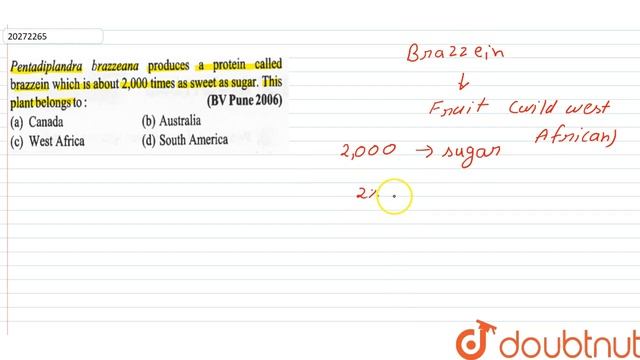 20272265
Pentadiplandra brazzeana produces a protein called
brazzein which is about 2,000 times as sweet as sugar. This
plant belongs to : (BV Pune 2006)
(a) Canada (b) Australia
(c) West Africa (d) South America
Brazzein
↓
Fruit (wild west
African)
2,000 → sugar
2%
doubtnut